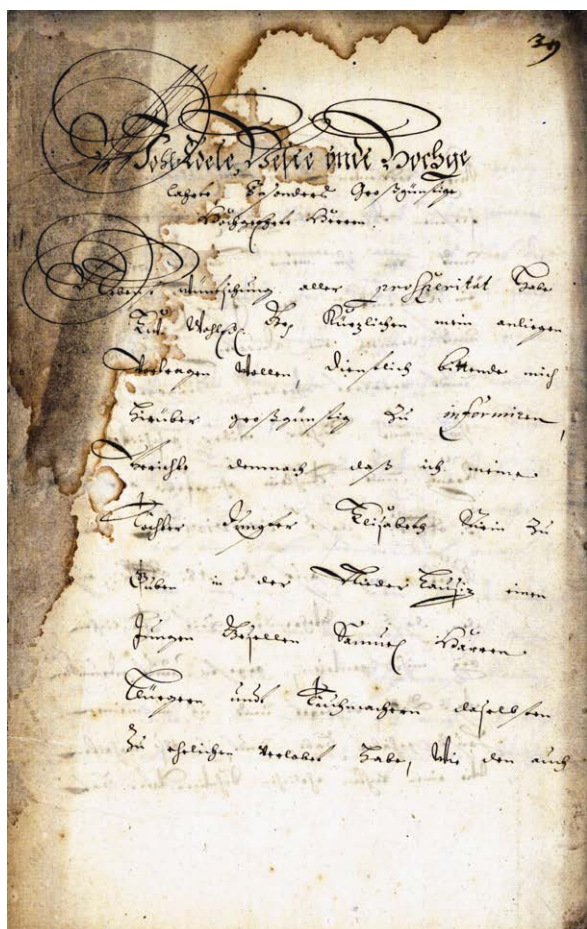 39
WohlEdele, Veste undt Hochge
lahrte besonders Großgünstige
Hochgeehrte Herren.
Nebenst wuntschung aller prosperität habe
Kürtzlichen mein anliegen
Vortragen Wollen, dienstlich bittende mich
hierüber großgünstig zu informiren,
Berichte demnach daß ich meine
Tochter Jungfer Elisabeth zu
Guben in der Nieder Lausitz einen
Jungen Gesellen Samuel Harren
Bürgern undt Tuchmachern daselbsten
zu ehelichen verlobet habe, Wie den auch